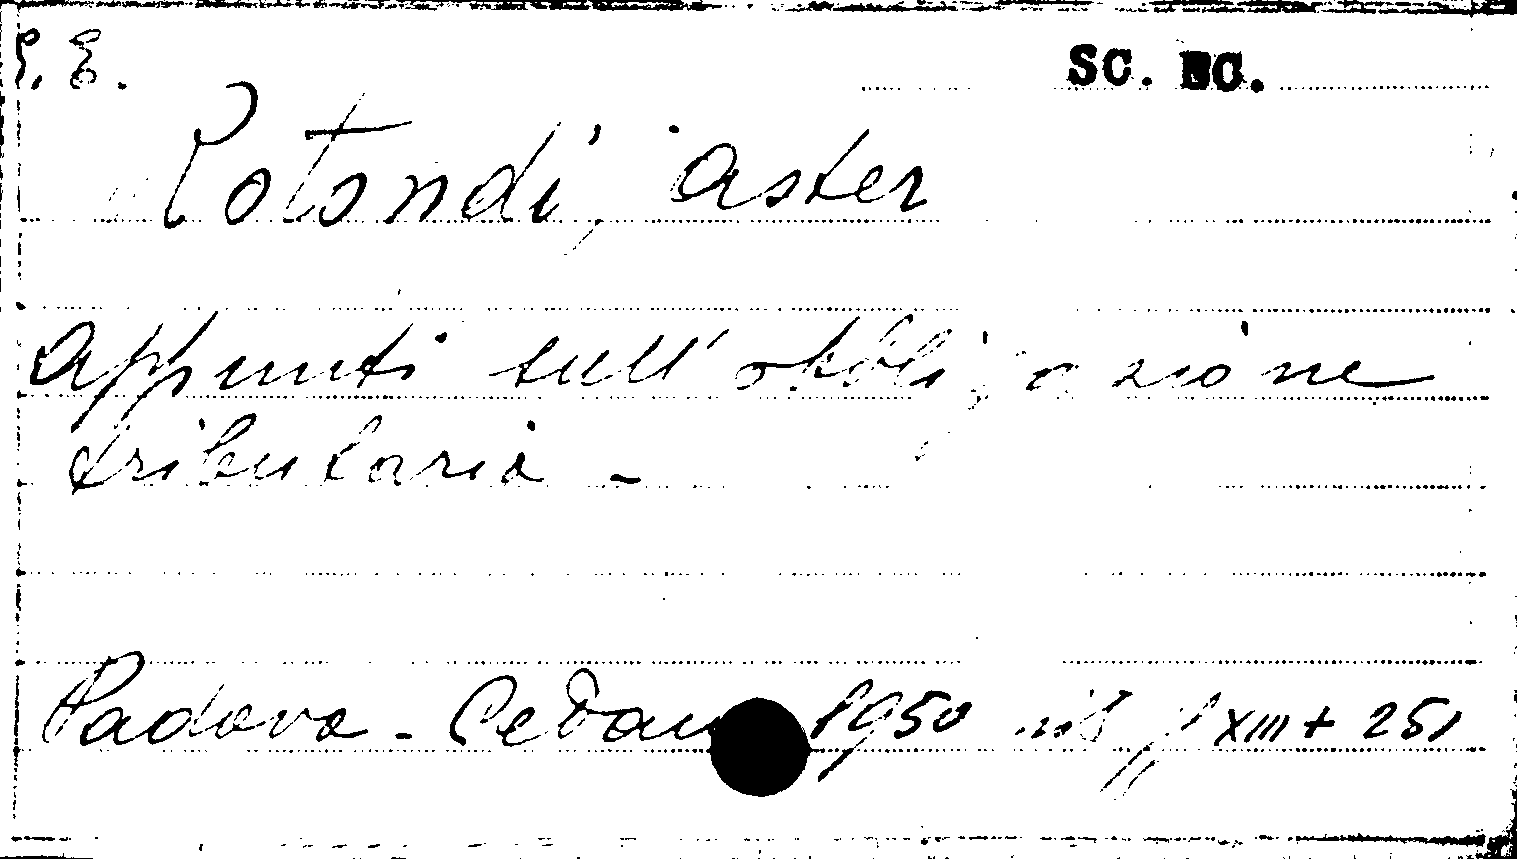 S. E.
SC. EC.
Rotondi, Aster
Appunti sull'obbligazione
tributaria -
Padova - Cedam 1950 in 8 pp XIII + 251